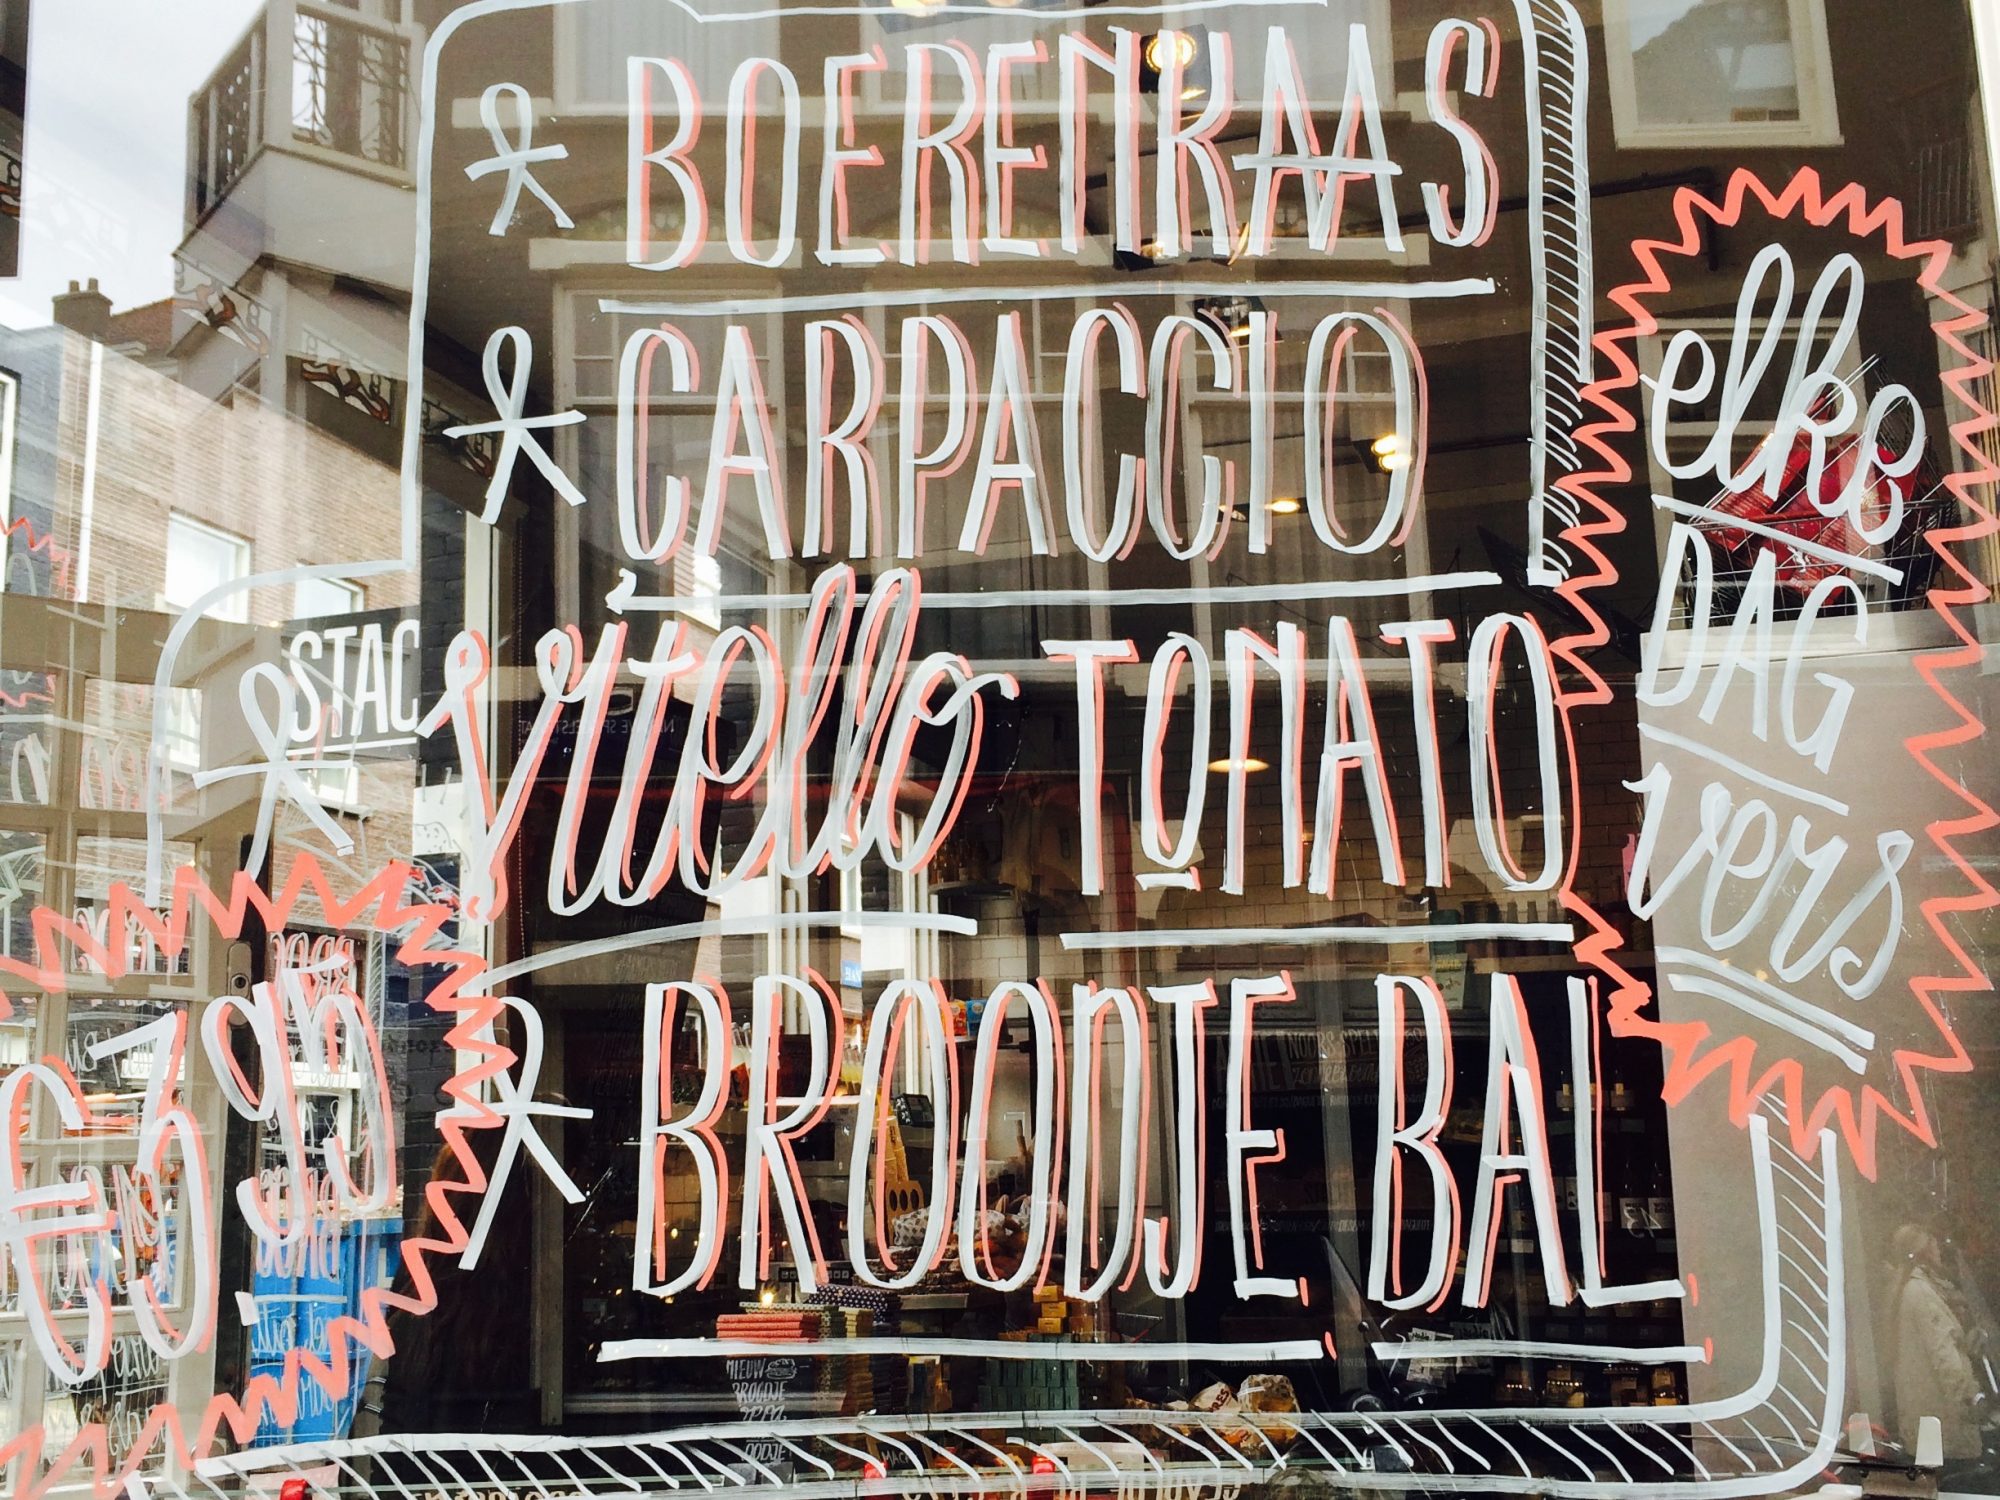 BOERENKAAS
CARPACCIO
STAC
vitello TOMATO
BROODJE BAL
elke
DAG
vers
€3,95
NIEUW
BROODJE